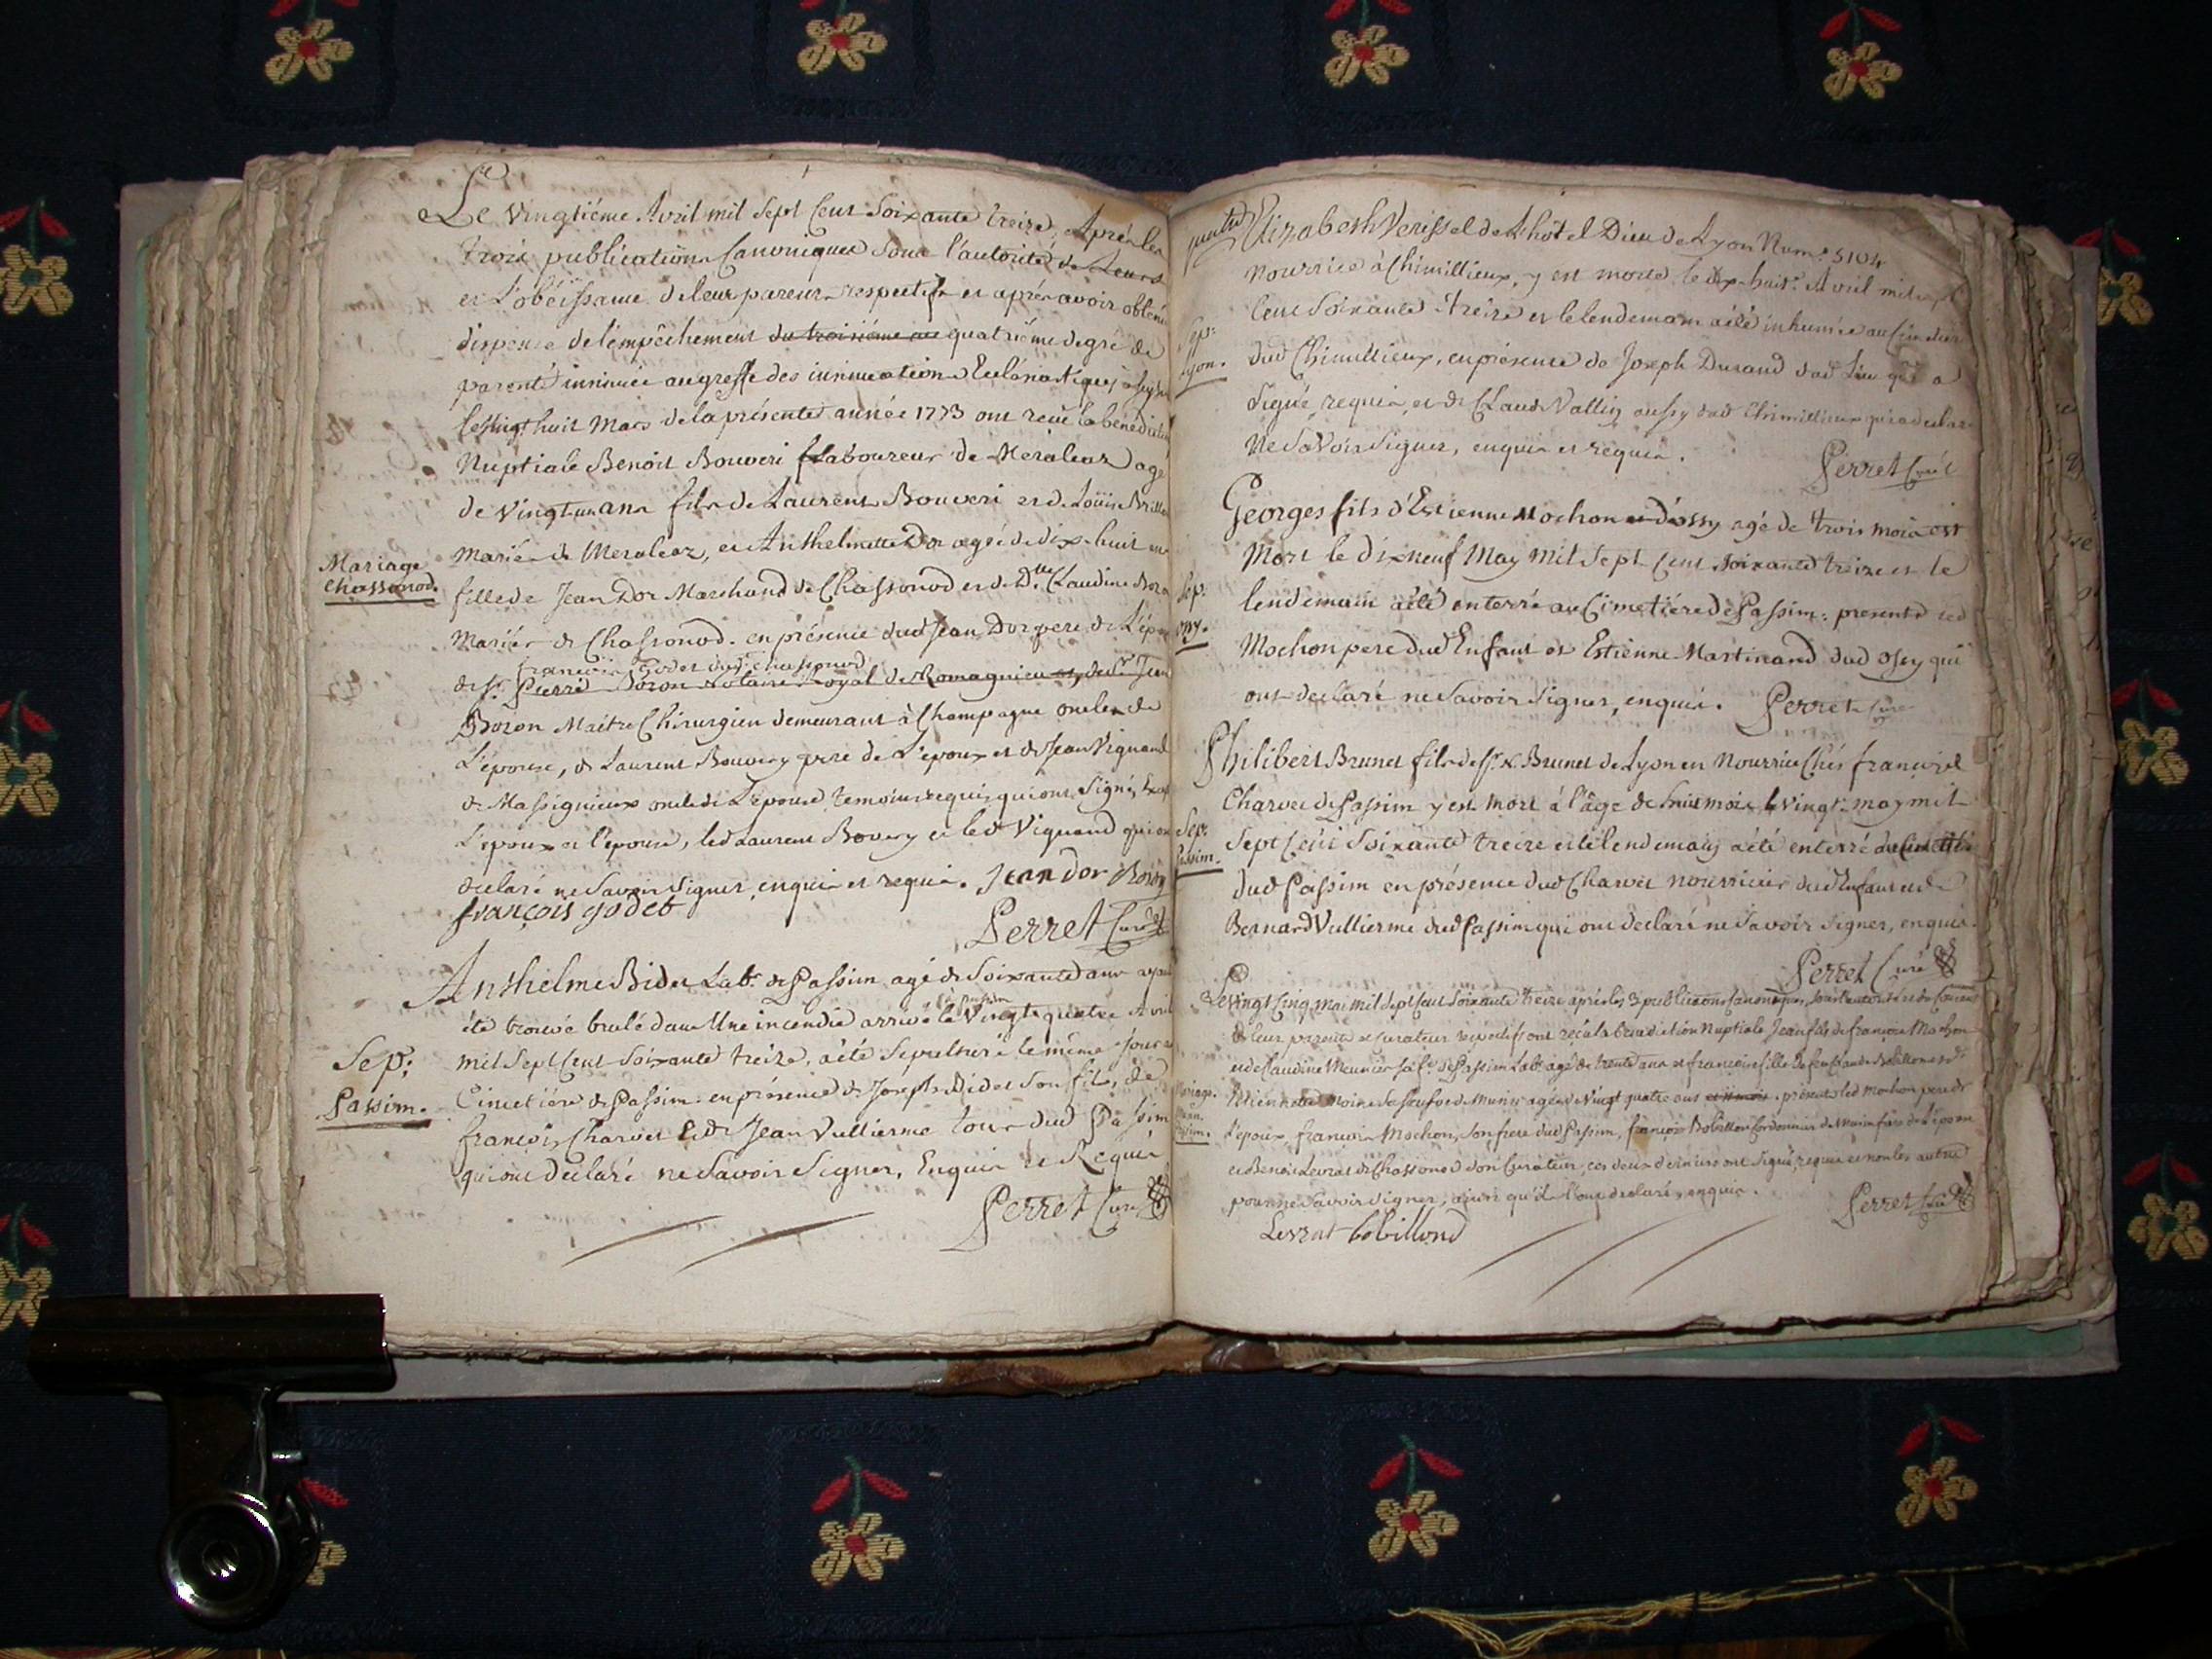 Le vingtiéme Avril mil sept cent soixante treize, Aprés les
trois publications Canoniques sous l'autorité de Leurs
et L'obéissance de leurs parens respectifs et aprés avoir obtenu
dispense de l'empêchement du troisiéme au quatriéme degré de
parenté insinuée au greffe des insinuations Ecclésiastiques
le vingt huit Mars de la présente année 1773 ont reçu la bénédiction
Nuptiale Benoit Bouveri Laboureur de Meraleaz agé
de vingt un ans fils de Laurent Bouveri et de Louise
Mariés de Meraleaz, et Anthelmette Dor agée de dix-huit ans
Mariage
Chassonod.
fille de Jean Dor Marchand de Chassonod et de Dlle Claudine
Mariés de Chassonod. en présence dud Jean Dor pere de L'épouse
françois Godet dud Chassonod
de sr. Pierre Boron Notaire Royal de Romagnieu et, de sr Jean
Boron Maitre Chirurgien demeurant à Champagne oncles de
L'épouse, de Laurent Bouvery pere de L'epoux et de Jean Vignand
de Massignieux oncle de L'épouse, temoins requis qui ont Signé,
L'époux et l'épouse, led Laurent Bovery et led Vignand qui ont
declaré ne Savoir Signer, enquis et requis. Jean dor Boron
françois godet
Perret Curé
Anthelme Bidet Labr. de Passim agé de Soixante ans ayant
à Passim
été trouvé brulé dans Une incendie arrivée le Vingt quatre Avril
Sep:
Passim.
mil Sept Cent Soixante treize, a été Sepulturé le même jour au
Cimetiére de Passim en présence de Joseph Bidet Son fils, de
françois Charvet et de Jean Vullierme tous dud Passim
qui ont declaré ne Savoir Signer, Enquis et Requis
Perret Curé
Elizabeth Verissel de L'hôtel Dieu de Lyon Num.o 5104
Nourrice à Chimillieux, y est morte le dix-huit. Avril mil sept
Cent Soixante treize et le lendemain a été inhumée au Cimetiere
Sep:
Lyon.
dud Chimillieux, en présence de Joseph Durand dud Lieu qui a
Signé requis, et de Claude Vallin aussy dud Chimillieux qui a declaré
Ne Savoir Signer, enquis et requis.
Perret Curé
Georges fils d'Estienne Mochon d'ossy agé de trois mois est
Mort le dixneuf May mil Sept Cent Soixante treize et le
Sep:
lendemain a été enterré au Cimetiére de Passim: presents led
Mochon pere dud Enfant et Estienne Martinand dud ossy qui
ont declaré ne Savoir Signer, enquis. Perret Curé
Philibert Brunet fils de sr. Brunet de Lyon en Nourrice Chés françois
Charvet de Passim y est mort à l'âge de huit mois le vingt. may mil
Sep:
Passim.
Sept Cent Soixante treize et le lendemain a été enterré au Cimetiére
dud Passim en présence dud Charvet nourricier dud Enfant et de
Bernard Vullierme dud Passim qui ont declaré ne Savoir Signer, enquis.
Perret Curé
Le vingt Cinq mai mil Sept Cent Soixante treize aprés les 3 publications Canoniques, sous l'autorité
de leurs parents et Curateur respectifs ont reçu la benediction Nuptiale Jean fils de françois Mochon
et de Claudine Meunier de Passim Labr. agé de trente ans et françoise fille de feu Claude Bobillon et d'
Mariage.
Passim.
Etiennette Moine de Munet agée de Vingt quatre ans. présents led Mochon pere de
L'époux, françois Mochon, son frere dud Passim, françois Bobillon Cordonnier de Munet frere de L'épouse
et Benoit Levrat de Chassonod son Curateur, ces deux derniers ont Signé, requis et non les autres
pour ne Savoir Signer, ainsi qu'ils l'ont declaré, enquis.
Perret Curé
Levrat bobillond